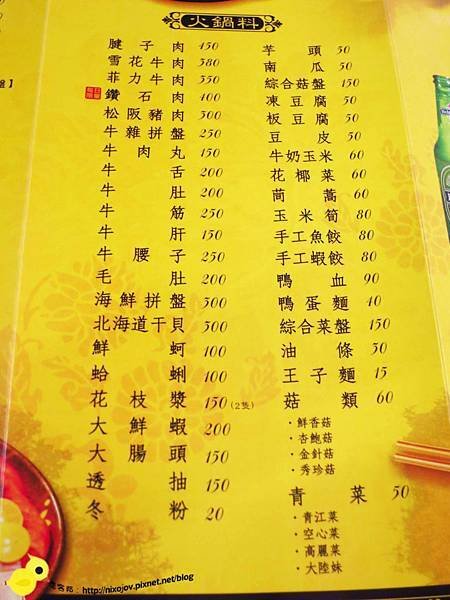 火鍋料
腱子肉 450
雪花牛肉 380
菲力牛肉 350
鑽石肉 400
松阪豬肉 300
牛雜拼盤 250
牛肉丸 150
牛舌 200
牛肚 200
牛筋 250
牛肝 150
牛腰子 250
毛肚 200
海鮮拼盤 500
北海道干貝 300
鮮蚵 100
蛤蜊 100
花枝漿 150(2隻)
大鮮蝦 200
大腸頭 150
透抽 150
冬粉 20
芋頭 50
南瓜 50
綜合菇盤 150
凍豆腐 50
板豆腐 50
豆皮 50
牛奶玉米 60
花椰菜 60
茼蒿 60
玉米筍 80
手工魚餃 80
手工蝦餃 80
鴨血 90
鴨蛋麵 40
綜合菜盤 150
油條 30
王子麵 15
菇類 60
・鮮香菇
・杏鮑菇
・金針菇
・秀珍菇
青菜 50
・青江菜
・空心菜
・高麗菜
・大陸妹
http://nixojov.pixnet.net/blog